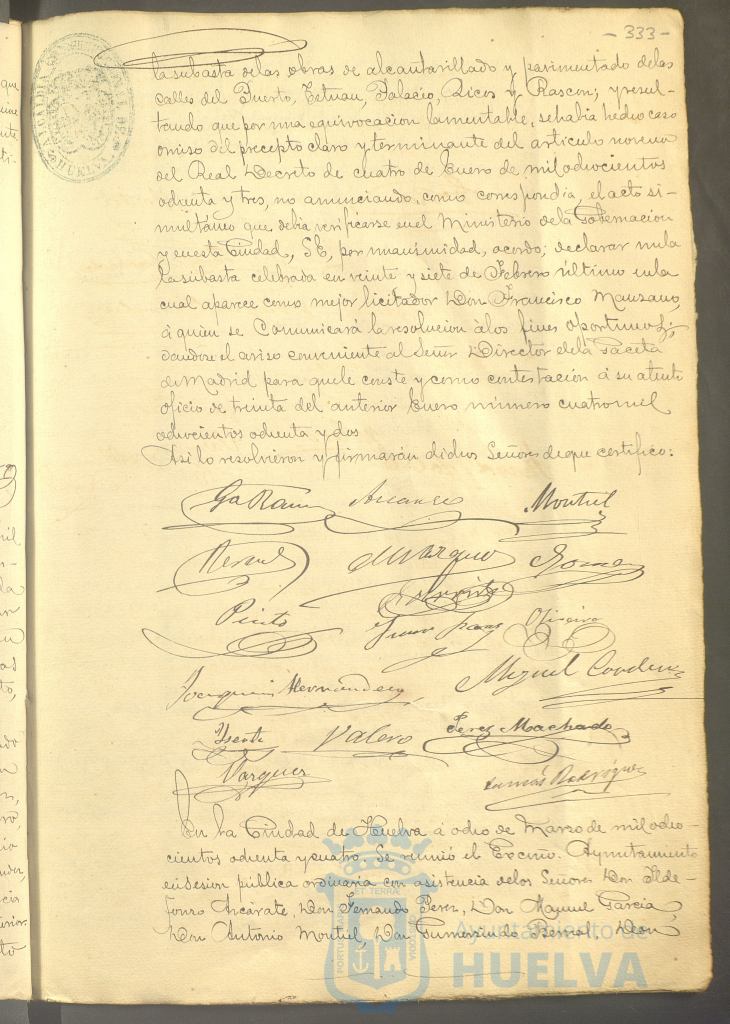 - 333 -
ALCALDIA HUELVA
la subasta de las obras de alcantarillado y pavimentado de las
calles del Puerto, Tetuan, Palacio, Ricos y Rascon; y resul-
tando que por una equivocacion lamentable, se habia hecho caso
omiso del precepto claro y terminante del articulo noveno
del Real Decreto de cuatro de Enero de mil ochocientos
ochenta y tres, no anunciando, como correspondia, el acto si-
multáneo que debia verificarse en el Ministerio de la Gobernacion
y en esta Ciudad, SE, por unanimidad, acordo; declarar nula
la subasta celebrada en veinte y siete de Febrero último en la
cual aparece como mejor licitador Don Francisco Manzano,
á quien se Comunicará la resolucion á los fines oportunos;
dandose el aviso conveniente al Señor Director de la Gaceta
de Madrid para que le conste y como contestacion á su atento
oficio de treinta del anterior Enero número cuatro mil
ochocientos ochenta y dos
Asi lo resolvieron y firmarán dichos Señores de que certifico:
Montiel
Bernal Marquez Gomez
Pinto Oliveira
Joaquin Hernandez Miguel
Ysente Valero Perez Machado
Vazquez Tomás Rodriguez
En la Ciudad de Huelva á ocho de Marzo de mil ocho-
cientos ochenta y cuatro, Se reunió el Excmo. Ayuntamiento
en sesion pública ordinaria con asistencia de los Señores Don Ylde-
fonso Ancárate, Don Fernando Perez, Don Manuel Garcia,
Don Antonio Montiel, Don Gumersindo Bernal, Don
Ayuntamiento de
HUELVA